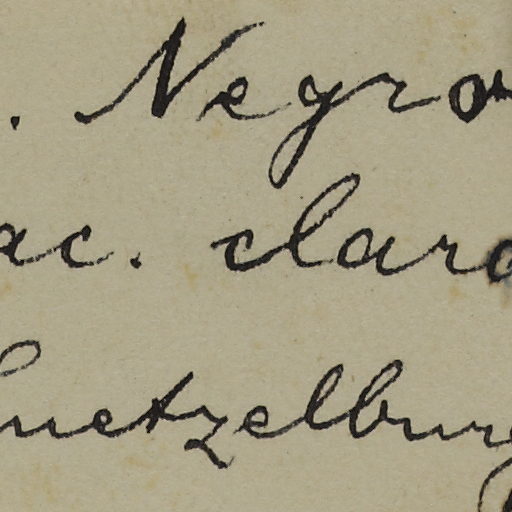 . Negro
ac. clara
luetzelburg